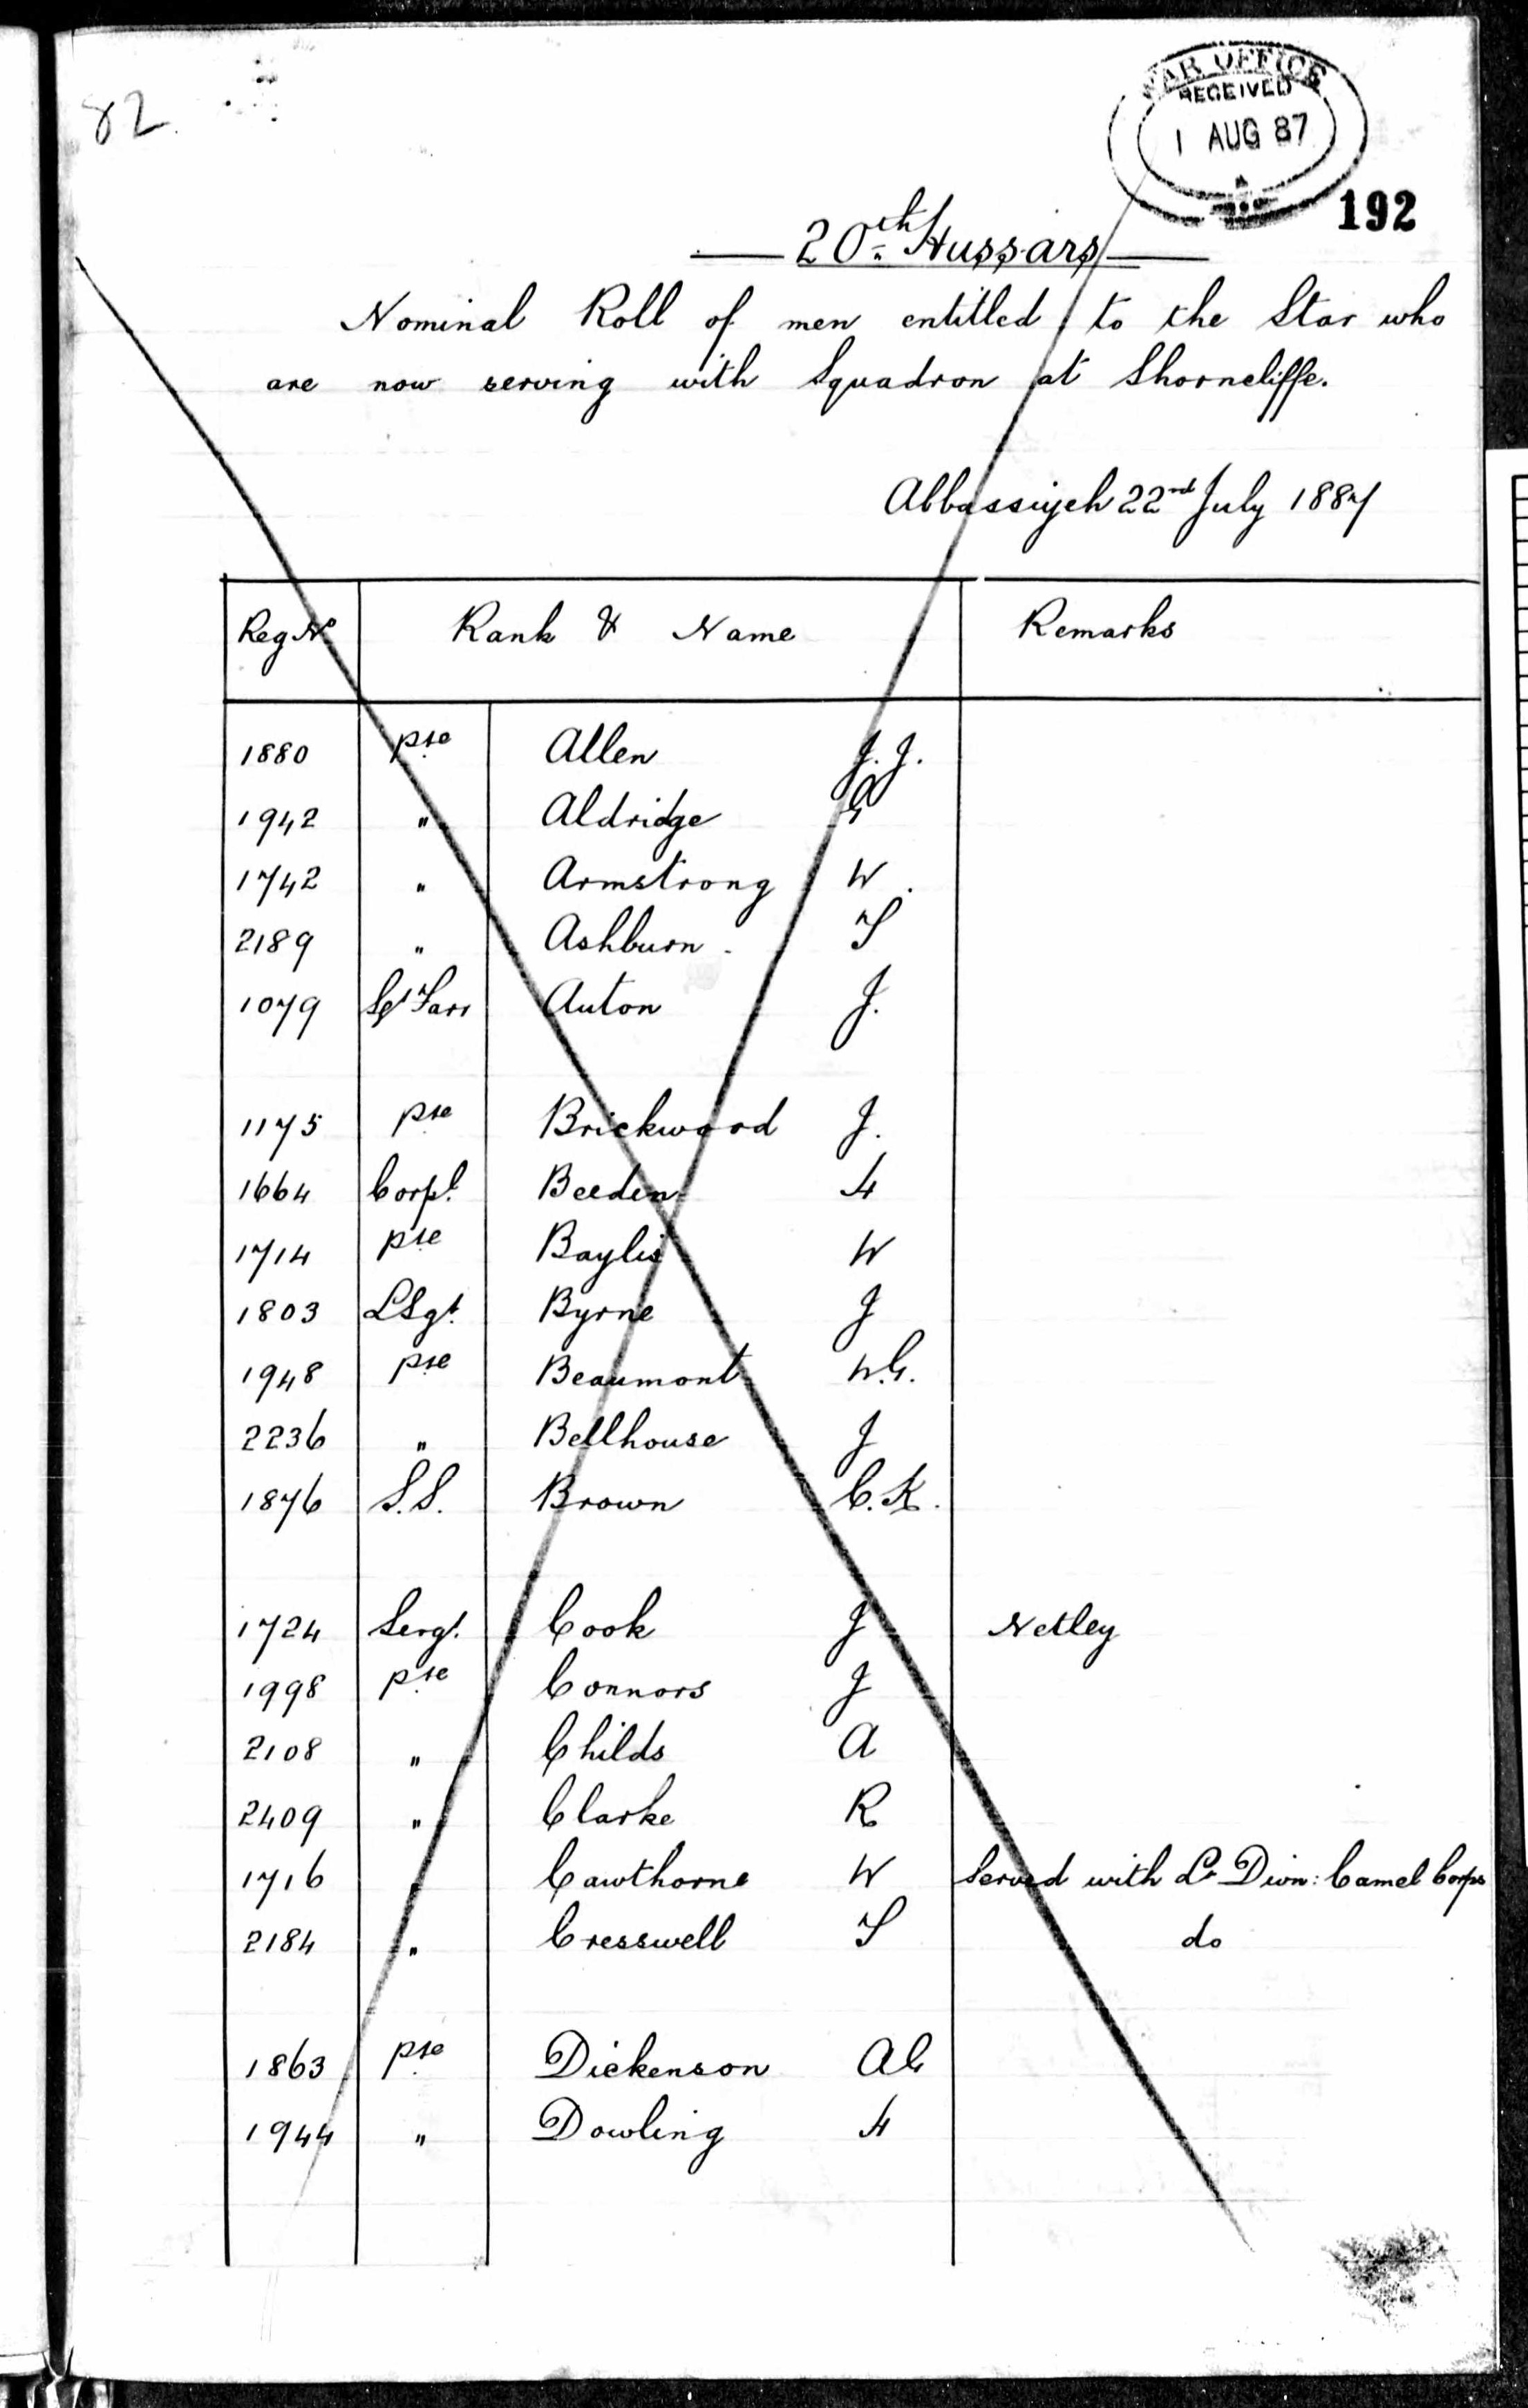 82
WAR OFFICE
RECEIVED
1 AUG 87
192
20th Hussars
Nominal Roll of men entitled to the Star who
are now serving with Squadron at Shorncliffe.
Abbassiyeh 22nd July 1887
Reg No Rank & Name Remarks
1880 pte Allen J. J.
1942 " Aldridge G
1742 " Armstrong W.
2189 " Ashburn T
1079 Sgt Farr Auton J.
1175 pte Brickwood J.
1664 Corpl. Beeden H
1714 pte Baylis W
1803 LSgt. Byrne J
1948 pte Beaumont W.G.
2236 " Bellhouse J
1876 S.S. Brown C.K.
1724 Sergt. Cook J Netley
1998 pte Connors J
2108 " Childs A
2409 " Clarke R
1716 " Cawthorne W Served with Lt Divn: Camel Corps
2184 " Cresswell T do
1863 pte Dickenson AC
1944 " Dowling H